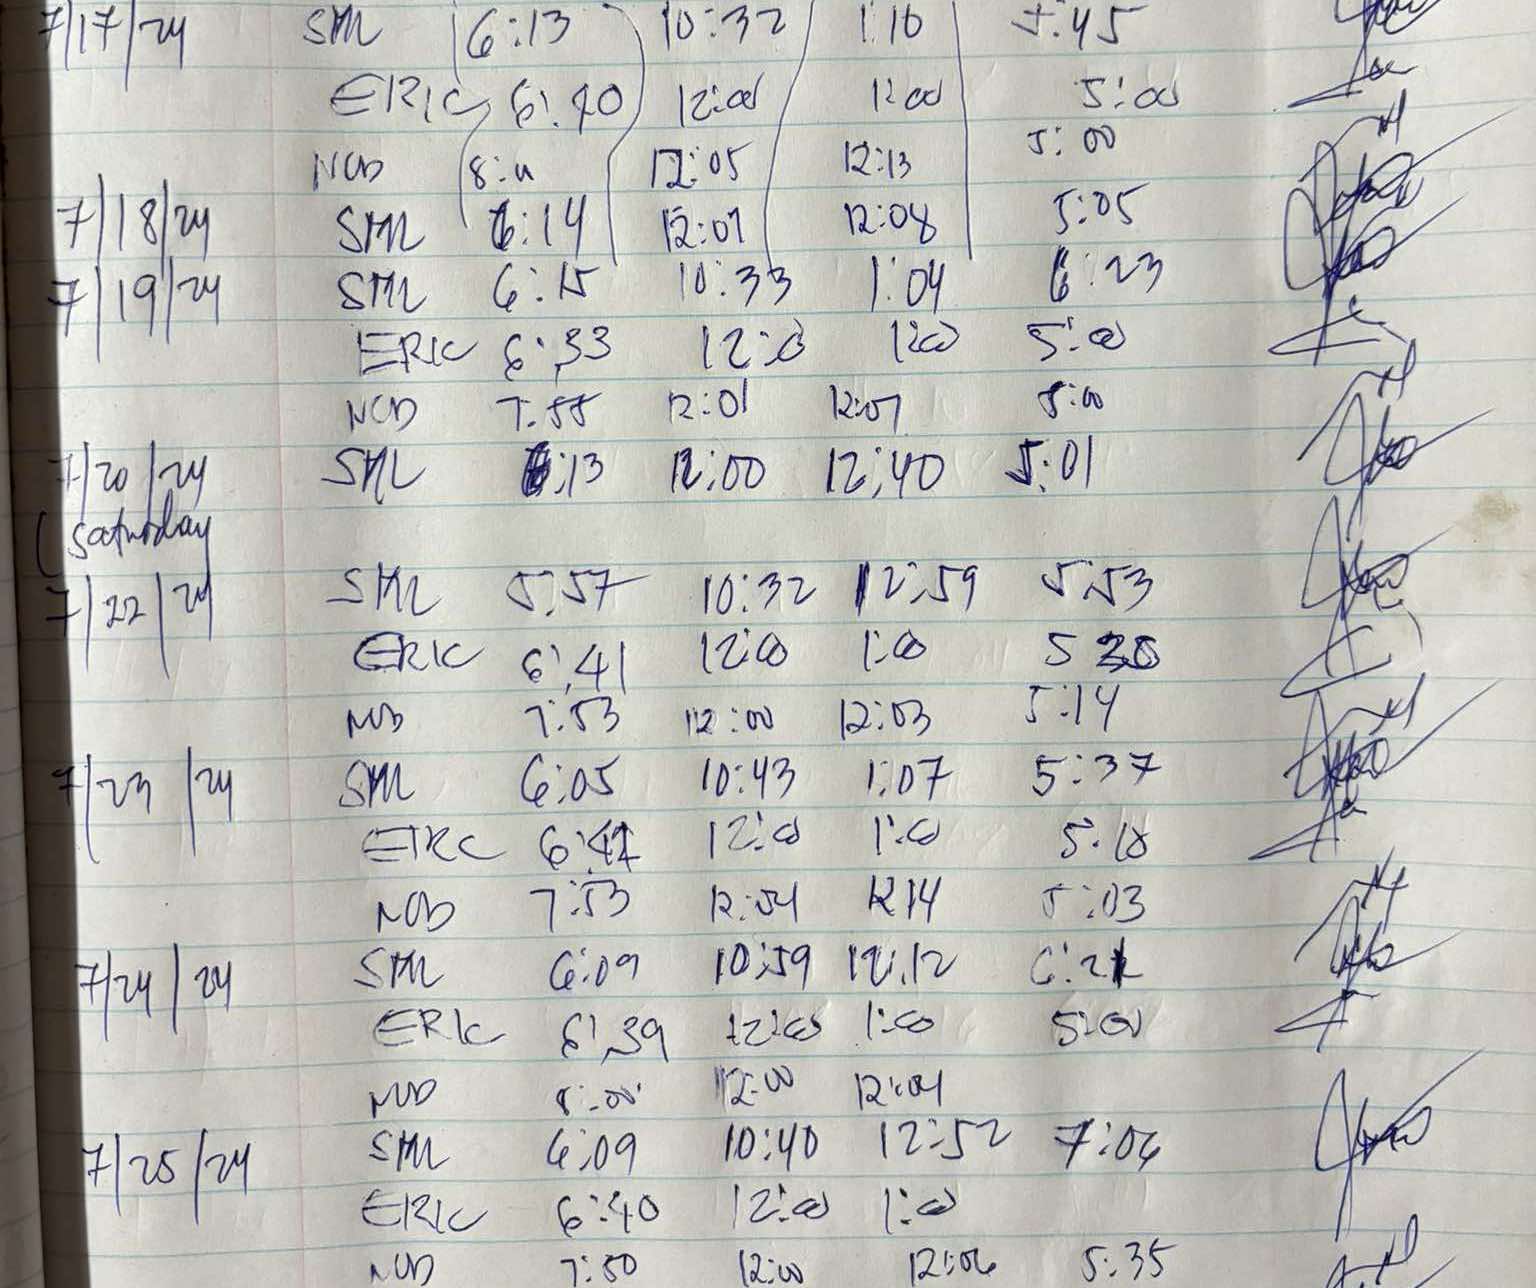 7/17/24 SML 6:13 10:32 1:10 5:45
ERIC 6:40 12:00 1:00 5:00
NOD 8:11 12:05 12:13 5:00
7/18/24 SML 6:14 12:07 12:08 5:05
7/19/24 SML 6:15 10:33 1:04 6:23
ERIC 6:33 12:00 1:00 5:00
NOD 7:55 12:01 12:07 5:00
7/20/24 SML 6:13 12:00 12:40 5:01
(Saturday
7/22/24 SML 5:57 10:32 12:59 5:53
ERIC 6:41 12:00 1:00 5 30
NOD 7:53 12:00 12:03 5:14
7/23/24 SML 6:05 10:43 1:07 5:37
ERIC 12:00 1:00 5:18
NOD 7:53 12:04 12 14 5:03
7/24/24 SML 6:09 10:59 12:12 6:21
ERIC 6:39 12:00 1:00 5:00
NOD 8:00 12:00 12:04
7/25/24 SML 6:09 10:40 12:52 7:06
ERIC 6:40 12:00 1:00
NOD 7:50 12:00 12:06 5:35